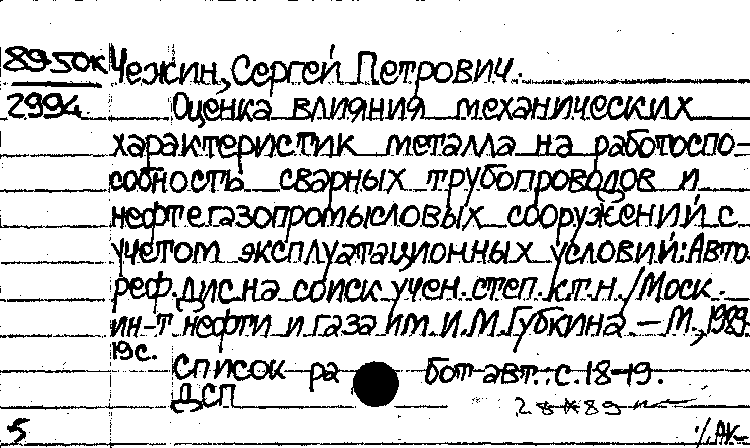 89-50к Чежин, Сергей Петрович.
2994 Оценка влияния механических
характеристик металла на работоспо-
собность сварных трубопроводов и
нефтегазопромысловых сооружений с
учетом эксплуатационных условий: Авто-
реф. дис на соиск учен. степ. к.т.н. / Моск.
ин-т нефти и газа им. И.М. Губкина. – М., 1989.
19 с.
Список работ авт.: с. 18-19.
ДСП
5